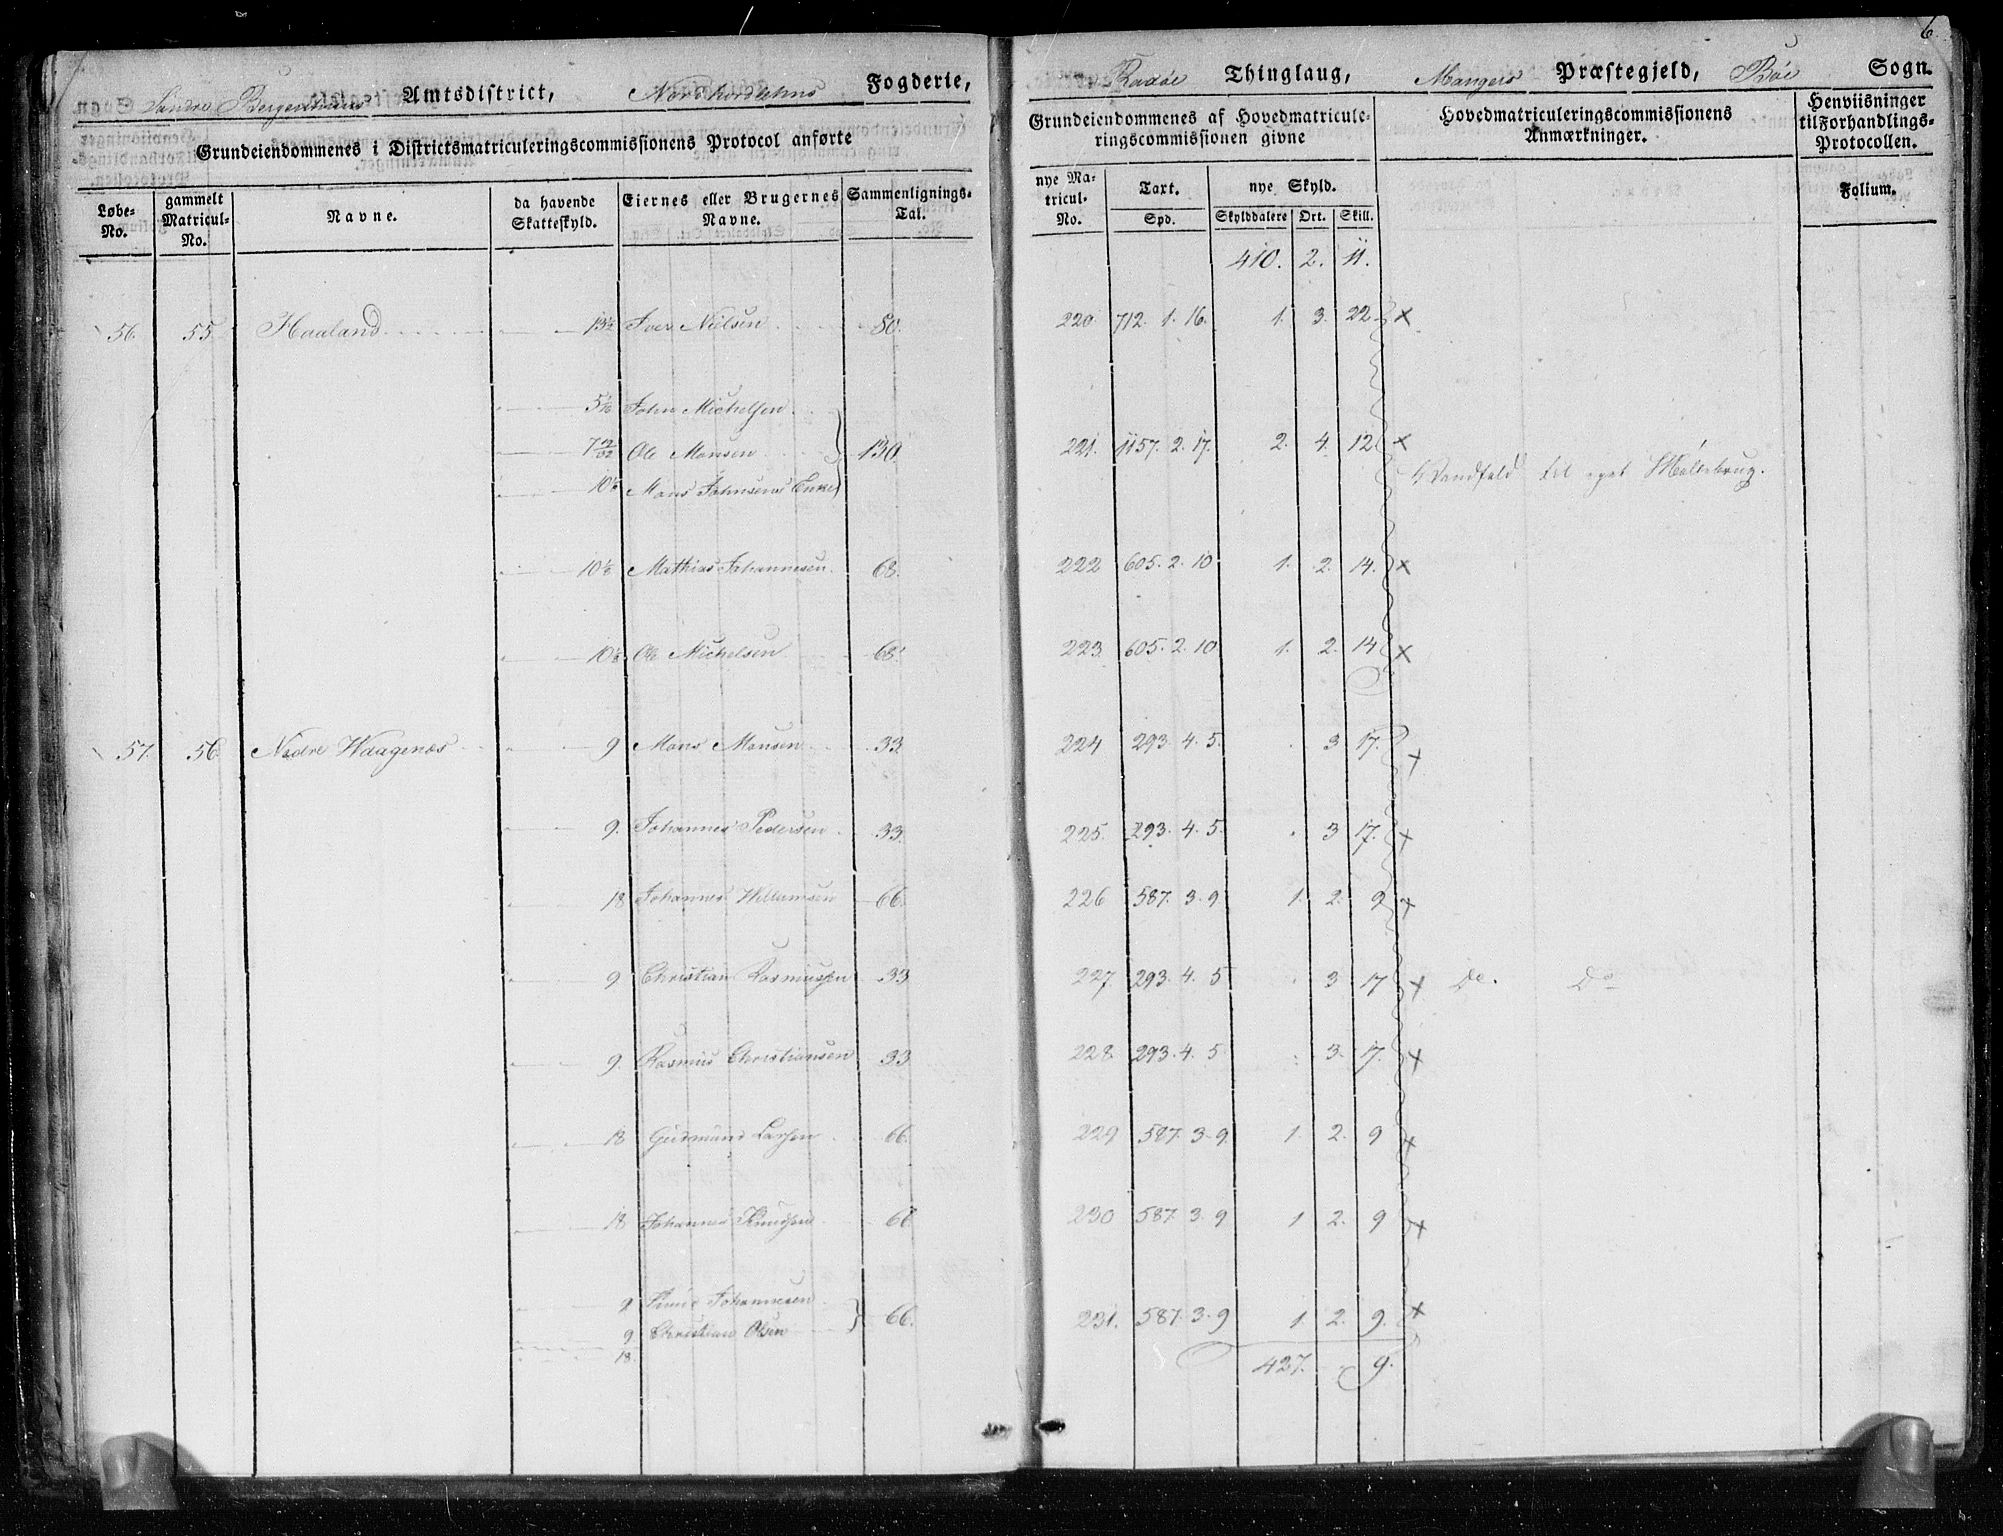 6.
Søndre Bergenhuus Amtsdistrict, Nordhordlehns Fogderie, Radøe Thinglaug, Mangers Præstegjeld, Bøe Sogn.
Grundeiendommenes i Districtsmatriculeringscommissionens Protocol anførte
Grundeiendommenes af Hovedmatriculeringscommissionen givne
Hovedmatriculeringscommissionens Anmærkninger.
Henviisninger til Forhandlings-Protocollen.
Løbe-No. gammelt Matricul-No. Navne. da havende Skatteskyld. Eiernes eller Brugernes Navne. Sammenlignings-Tal. nye Matricul-No. Taxt. Spd. nye Skyld. Skylddalere Ort. Skill. Folium.
410. 2. 11.
56. 55. Haaland 13½ Iver Nielsen 80. 220 712. 1. 16. 1. 3. 22 x
John Michelsen
Ole Monsen 130. 221. 1157. 2. 17. 2. 4. 12 x
Mons Johnsens Enke
Vandfald til eget Møllebrug.
Mathias Johannesen 68. 222 605. 2. 10 1. 2. 14. x
Ole Michelsen 68. 223. 605. 2. 10. 1. 2. 14 x
57. 56. Nedre Waagenæs 9 Mons Monsen 33 224 293. 4. 5. 3 17. x
9. Johannes Pedersen 33. 225. 293. 4. 5. 3 17. x
18 Johannes Willumsen 66. 226 587. 3. 9 1. 2. 9 x
9 Christian Rasmussen 33 227 293. 4. 5 3 17 x Do. Do
9. Rasmus Christiansen 33 228 293. 4. 5 3. 17. x
18 Gudmund Larsen 66. 229 587. 3. 9. 1. 2. 9 x
18 Johannes Knudsen 66. 230 587. 3. 9 1 2. 9 x
9 Knud Johannesen
66. 231. 587. 3. 9 1. 2. 9. x
9 Christian Olsen
18.
427. 9.